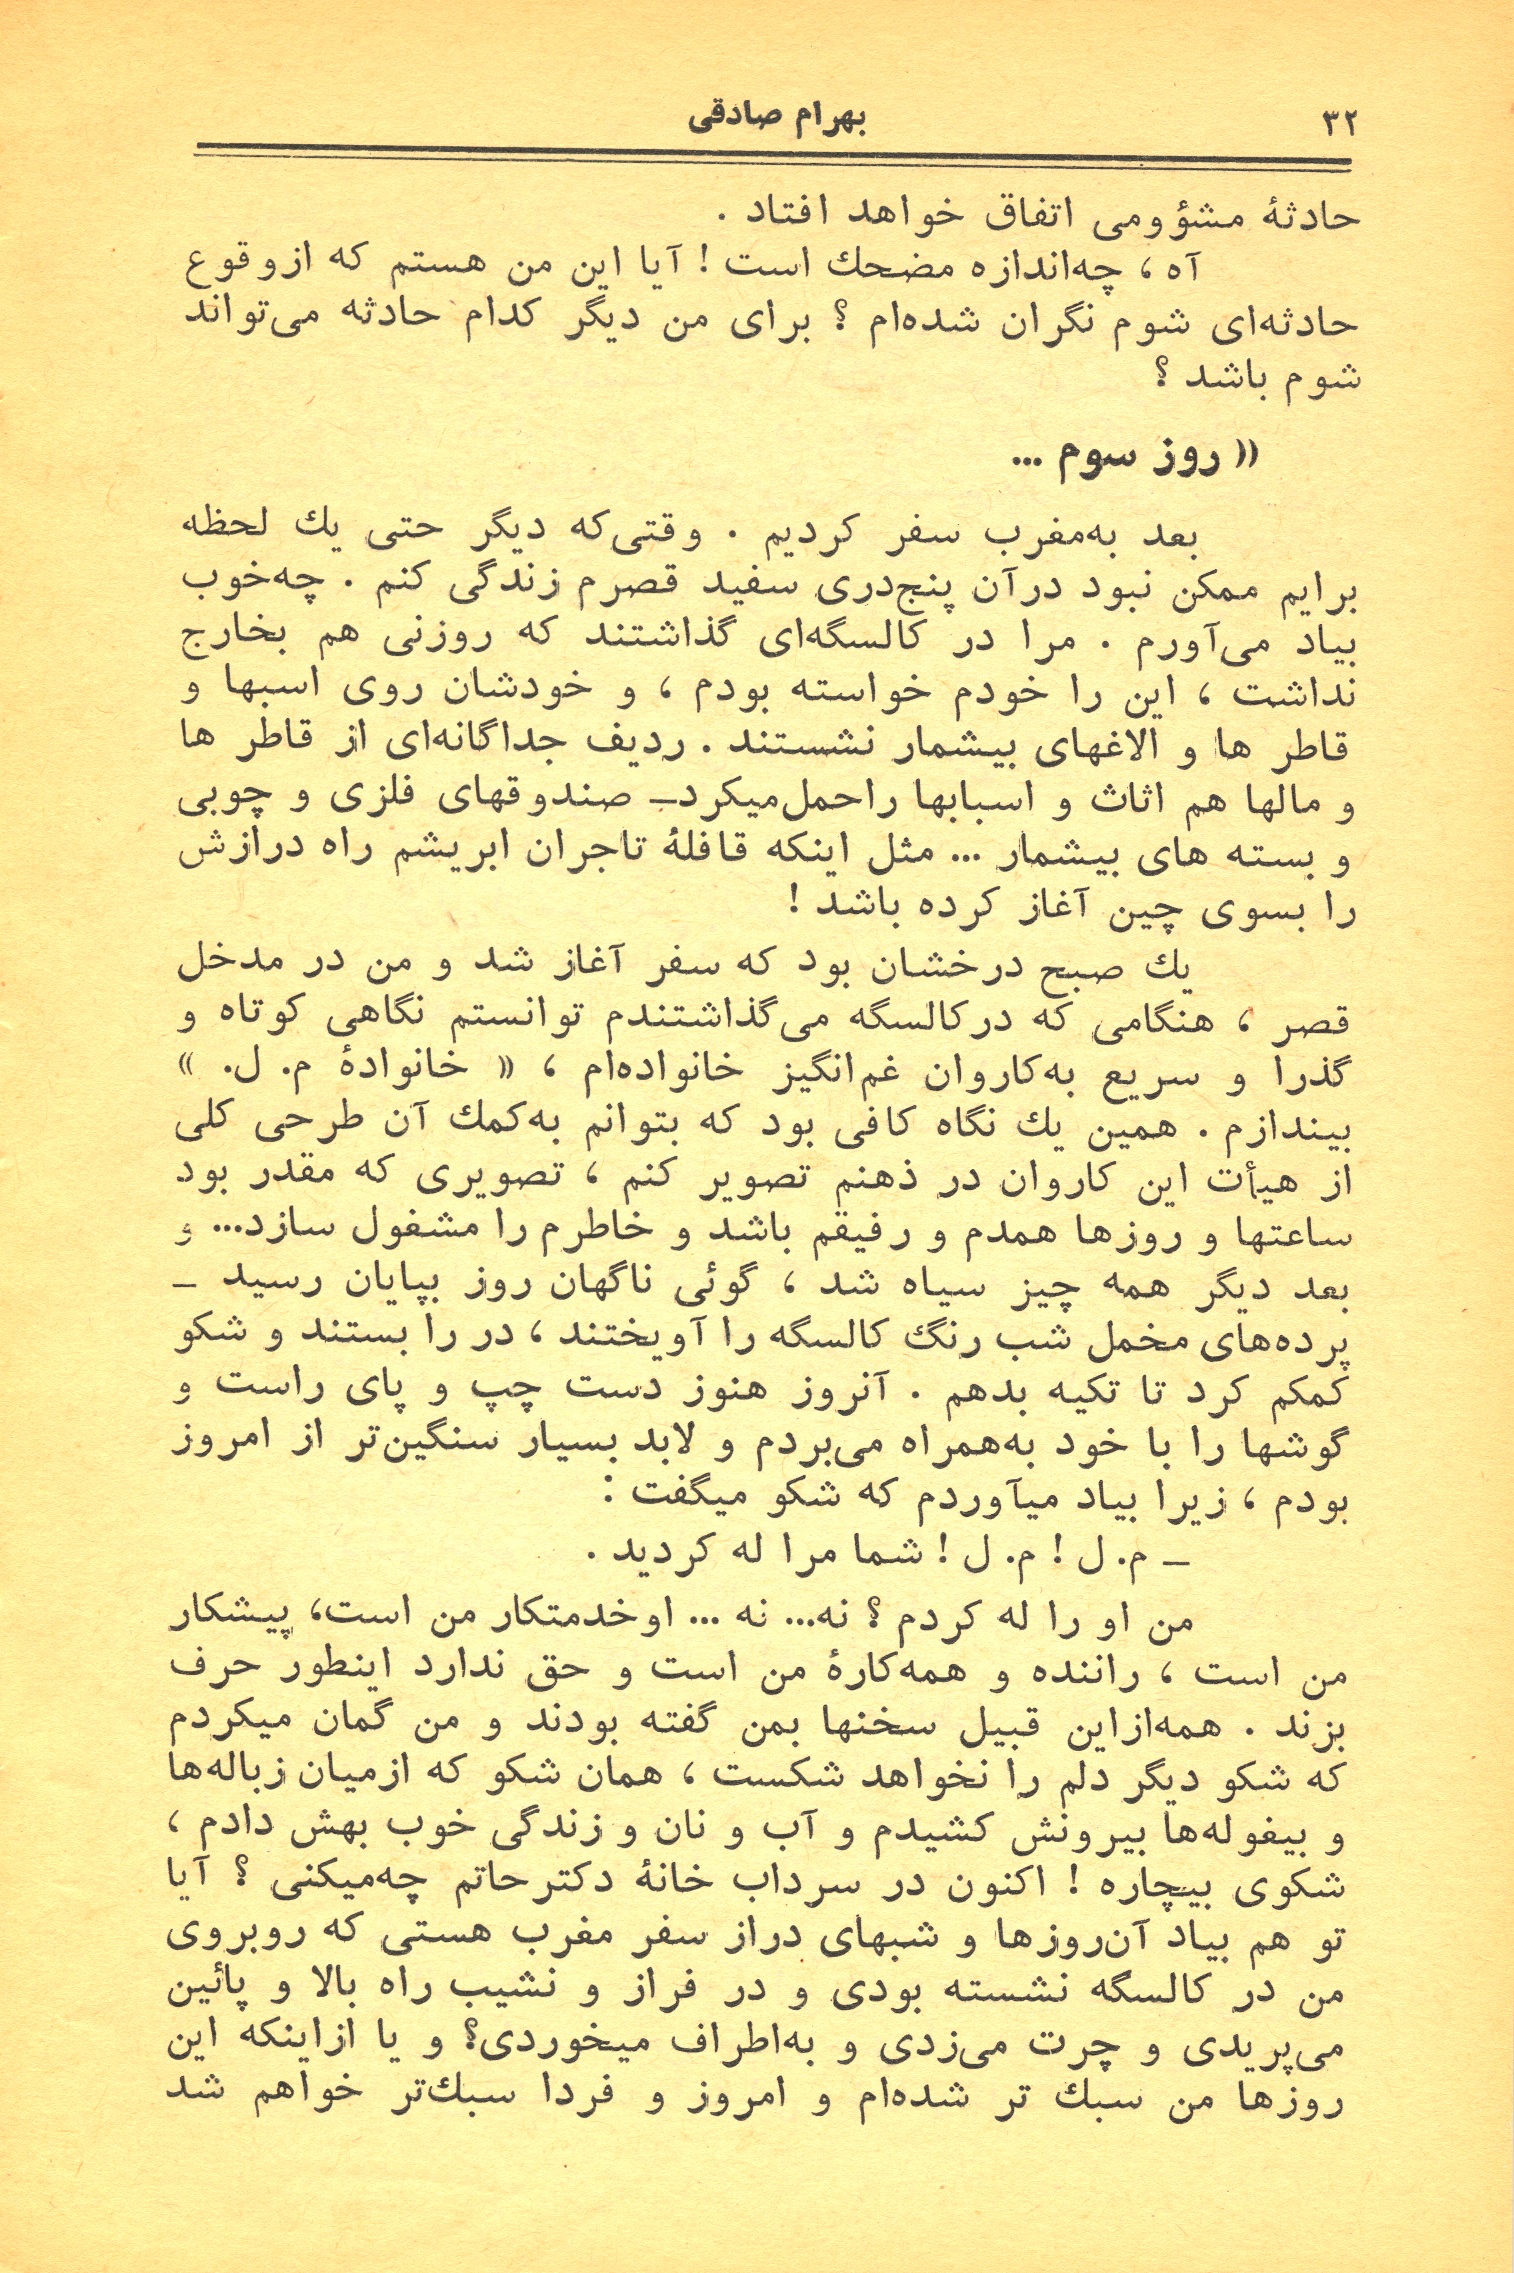 ۳۲
بهرام صادقی
حادثهٔ مشؤومی اتفاق خواهد افتاد .
آه ، چه‌اندازه مضحك است ! آیا این من هستم که ازوقوع
حادثه‌ای شوم نگران شده‌ام ؟ برای من دیگر کدام حادثه می‌تواند
شوم باشد ؟
« روز سوم ...
بعد به‌مغرب سفر کردیم . وقتی‌که دیگر حتی یك لحظه
برایم ممکن نبود درآن پنج‌دری سفید قصرم زندگی کنم . چه‌خوب
بیاد می‌آورم . مرا در کالسگه‌ای گذاشتند که روزنی هم بخارج
نداشت ، این را خودم خواسته بودم ، و خودشان روی اسبها و
قاطر ها و الاغهای بیشمار نشستند . ردیف جداگانه‌ای از قاطر ها
و مالها هم اثاث و اسبابها راحمل‌میکرد_ صندوقهای فلزی و چوبی
و بسته های بیشمار ... مثل اینکه قافلهٔ تاجران ابریشم راه درازش
را بسوی چین آغاز کرده باشد !
یك صبح درخشان بود که سفر آغاز شد و من در مدخل
قصر ، هنگامی که درکالسگه می‌گذاشتندم توانستم نگاهی کوتاه و
گذرا و سریع به‌کاروان غم‌انگیز خانواده‌ام ، « خانوادهٔ م. ل. »
بیندازم . همین یك نگاه کافی بود که بتوانم به‌کمك آن طرحی کلی
از هیأت این کاروان در ذهنم تصویر کنم ، تصویری که مقدر بود
ساعتها و روزها همدم و رفیقم باشد و خاطرم را مشغول سازد... و
بعد دیگر همه چیز سیاه شد ، گوئی ناگهان روز بپایان رسید _
پرده‌های مخمل شب رنگ کالسگه را آویختند ، در را بستند و شکو
کمکم کرد تا تکیه بدهم . آنروز هنوز دست چپ و پای راست و
گوشها را با خود به‌همراه می‌بردم و لابد بسیار سنگین‌تر از امروز
بودم ، زیرا بیاد میآوردم که شکو میگفت :
_ م. ل ! م. ل ! شما مرا له کردید .
من او را له کردم ؟ نه... نه ... اوخدمتکار من است، پیشکار
من است ، راننده و همه‌کارهٔ من است و حق ندارد اینطور حرف
بزند . همه‌ازاین قبیل سخنها بمن گفته بودند و من گمان میکردم
که شکو دیگر دلم را نخواهد شکست ، همان شکو که ازمیان زباله‌ها
و بیغوله‌ها بیرونش کشیدم و آب و نان و زندگی خوب بهش دادم ،
شکوی بیچاره ! اکنون در سرداب خانهٔ دکترحاتم چه‌میکنی ؟ آیا
تو هم بیاد آن‌روزها و شبهای دراز سفر مغرب هستی که روبروی
من در کالسگه نشسته بودی و در فراز و نشیب راه بالا و پائین
می‌پریدی و چرت می‌زدی و به‌اطراف میخوردی؟ و یا ازاینکه این
روزها من سبك تر شده‌ام و امروز و فردا سبك‌تر خواهم شد